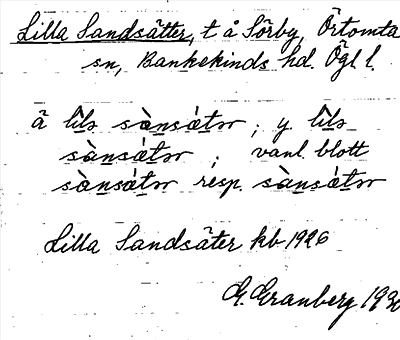 Lilla Sandsätter, t å Sörby, Örtomta
sn, Bankekinds hd. Ögl l.
ä lìls sànsǽtər; y. lìls
sànsǽtər; vanl. blott
sànsǽtər resp. sànsǽtər
Lilla Sandsäter kb 1926
G. Granberg 1930